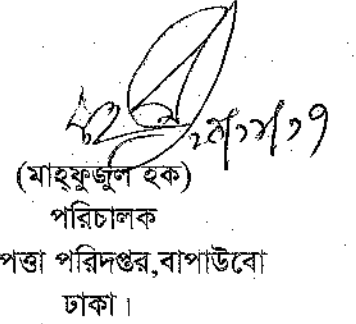 (মাহ্ফুজুল হক)
পরিচালক
পত্তা পরিদপ্তর,বাপাউবো
ঢাকা।